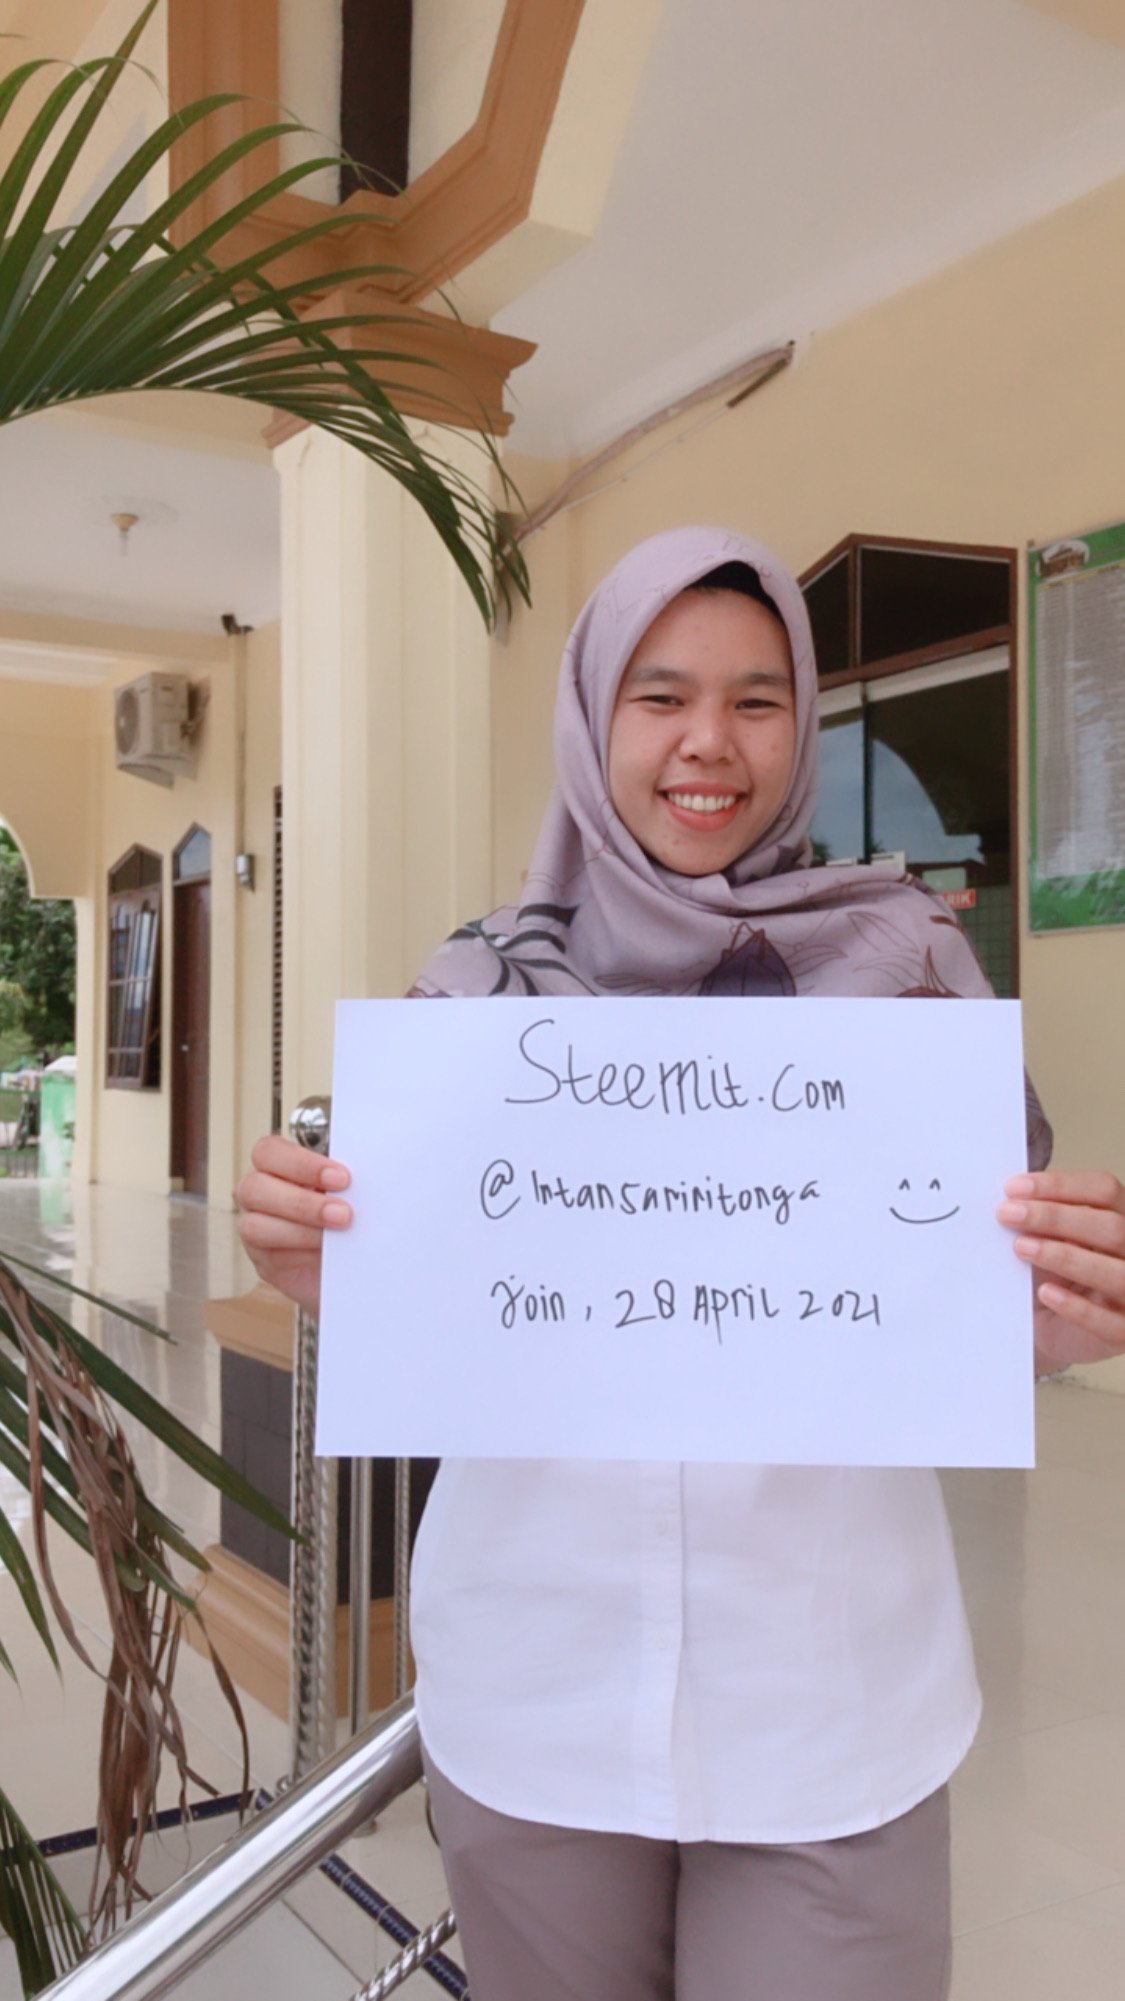 Steemit.com
@intansariritonga
join, 28 April 2021
ARIK